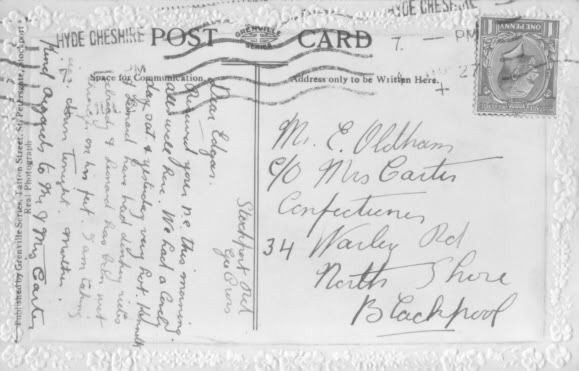 HYDE CHESHIRE
HYDE CHESHIRE
POST CARD
GRENVILLE
SERIES
7. PM
27
ONE PENNY
Space for Communication.
Address only to be Written Here.
Published by Grenville Series, Tatton Street, St. Petersgate, Stockport.
Real Photograph
Stockport Rd
Gee Cross
Dear Edgar.
Received yours this morning.
all well here. We had a lovely
day sat & yesterday very hot. Kenneth
& Leonard have had donkey rides
& Leonard has been
on his feet. I am taking
down tonight. Mother.
Kind regards to Mr & Mrs Carter
Mr. E. Oldham
c/o Mrs Carter
Confectioner
34 Warley Rd
North Shore
Blackpool